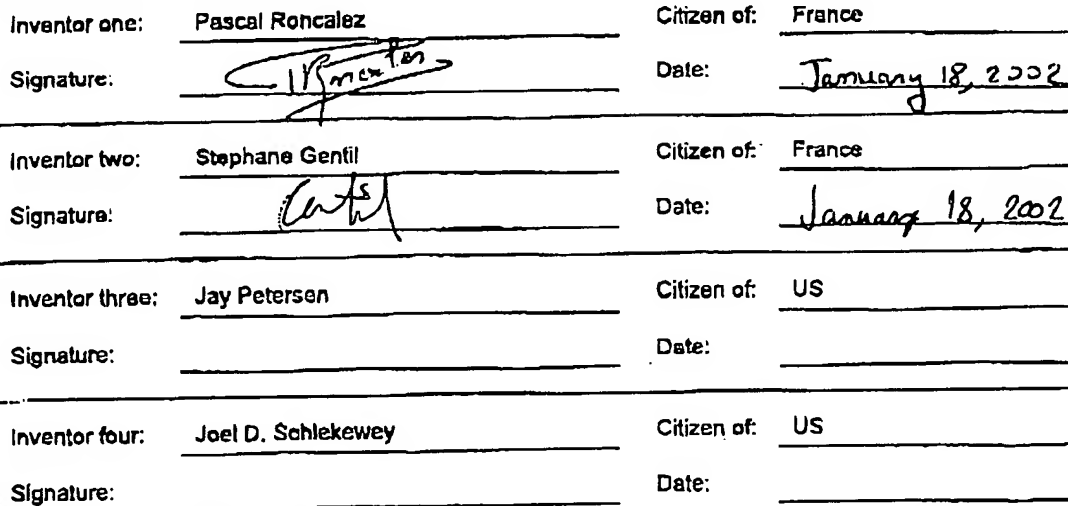 Inventor one: Pascal Roncalez Citizen of: France
Signature: Date: January 18, 2002
Inventor two: Stephane Gentil Citizen of: France
Signature: Gentil Date: January 18, 2002
Inventor three: Jay Petersen Citizen of: US
Signature: Date:
Inventor four: Joel D. Schlekewey Citizen of: US
Signature: Date: